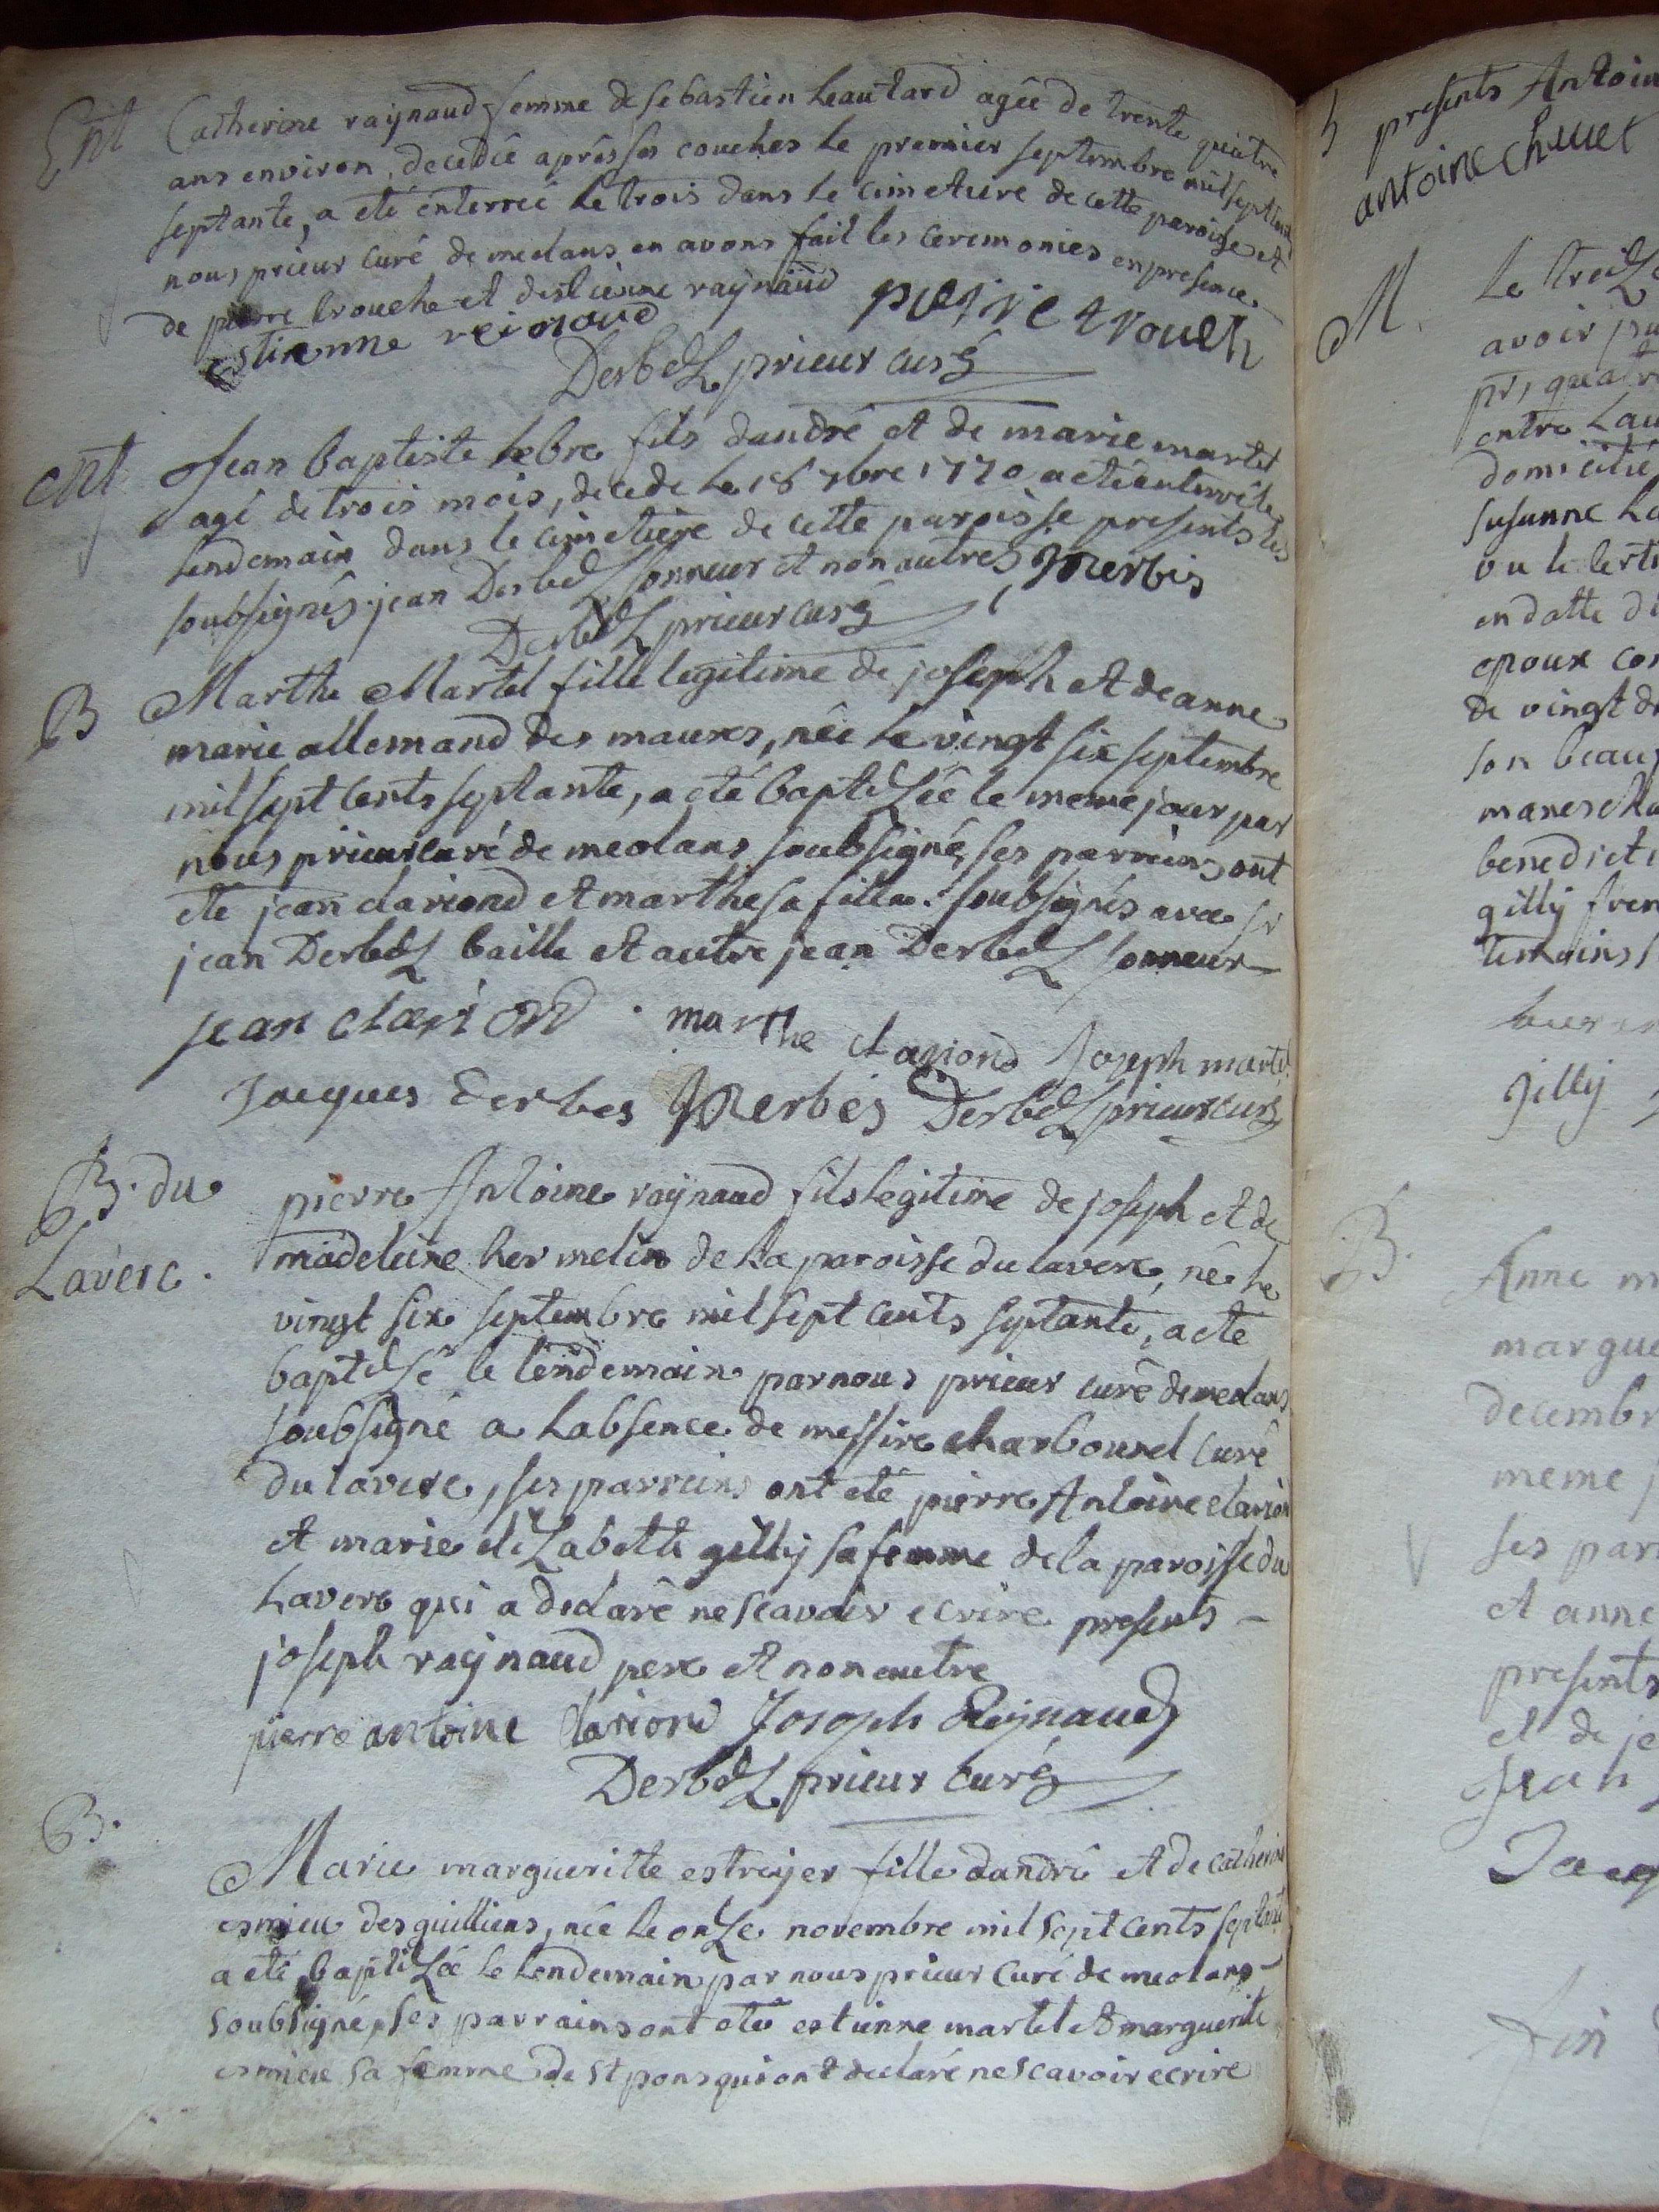 Ent Catherine raynaud femme de sebastien heautard agée de trente quatre
ans environ, decedée aprés ses couches le premier septembre mil sept cents
septante, a eté enterrée le trois dans le cimetiere de cette paroisse et
nous prieur curé de meolans en avons fait les ceremonies en presence
de pierre trouche et destienne raynaud
estienne reinaud pierre trouch
Derbez prieur curé
ent Jean baptiste hebre fils dandré et de marie martel
agé de trois mois, decedé le 18 7bre 1770 a eté enterré le
lendemain dans le cimetiere de cette paroisse presents les
soubsignés jean Derbez sonneur et non autres J Derbés
Derbez prieur curé
B Marthe Martel fille legitime de joseph et de anne
marie allemand des maures, née le vingt six septembre
mil sept cents septante, a eté baptizée le meme jour par
nous prieur curé de meolans soubsigné, ses parreins ont
eté jean clariond et marthe sa fille soubsignés avec sr
jean Derbez baille et autre jean Derbez sonneur
jean clariond marthe clariond Joseph martel
Jacques Derbes J Derbés Derbez prieur curé
B. du Laverc.
pierre Antoine raynaud fils legitime de joseph et de
madeleine hermelin de la paroisse du laverc, né le
vingt six septembre mil sept cents septante, a eté
baptizé le lendemain par nous prieur curé de meolans
soubsigné a labsence de messire charbounel curé
du laverc, ses parreins ont eté pierre Antoine clariond
et marie elizabette gilly sa femme de la paroisse du
laverc qui a declaré ne scavoir ecrire presents
joseph raynaud pere et non autre
pierre antoine clariond Joseph Reynaud
Derbez prieur curé
B.
Marie margueritte estrayer fille dandré et de catherine
esmieu des guilliens, née le onze novembre mil sept cents septante
a eté baptizée le lendemain par nous prieur curé de meolans
soubsigné, ses parrains ont eté estienne martel et marguerite
esmieu sa femme de st pons qui ont declaré ne scavoir ecrire
presents Antoin
antoine
M. Le treize
avoir pu
entre Lau
domicilié
susanne
vu le certi
en datte d
epoux con
de vingt d
son beau
benedicti
gilly fren
temoins
gilly
B.
Anne m
margue
decembr
meme
ses parr
et anne
presents
et de je
Jean
Jacq
fin